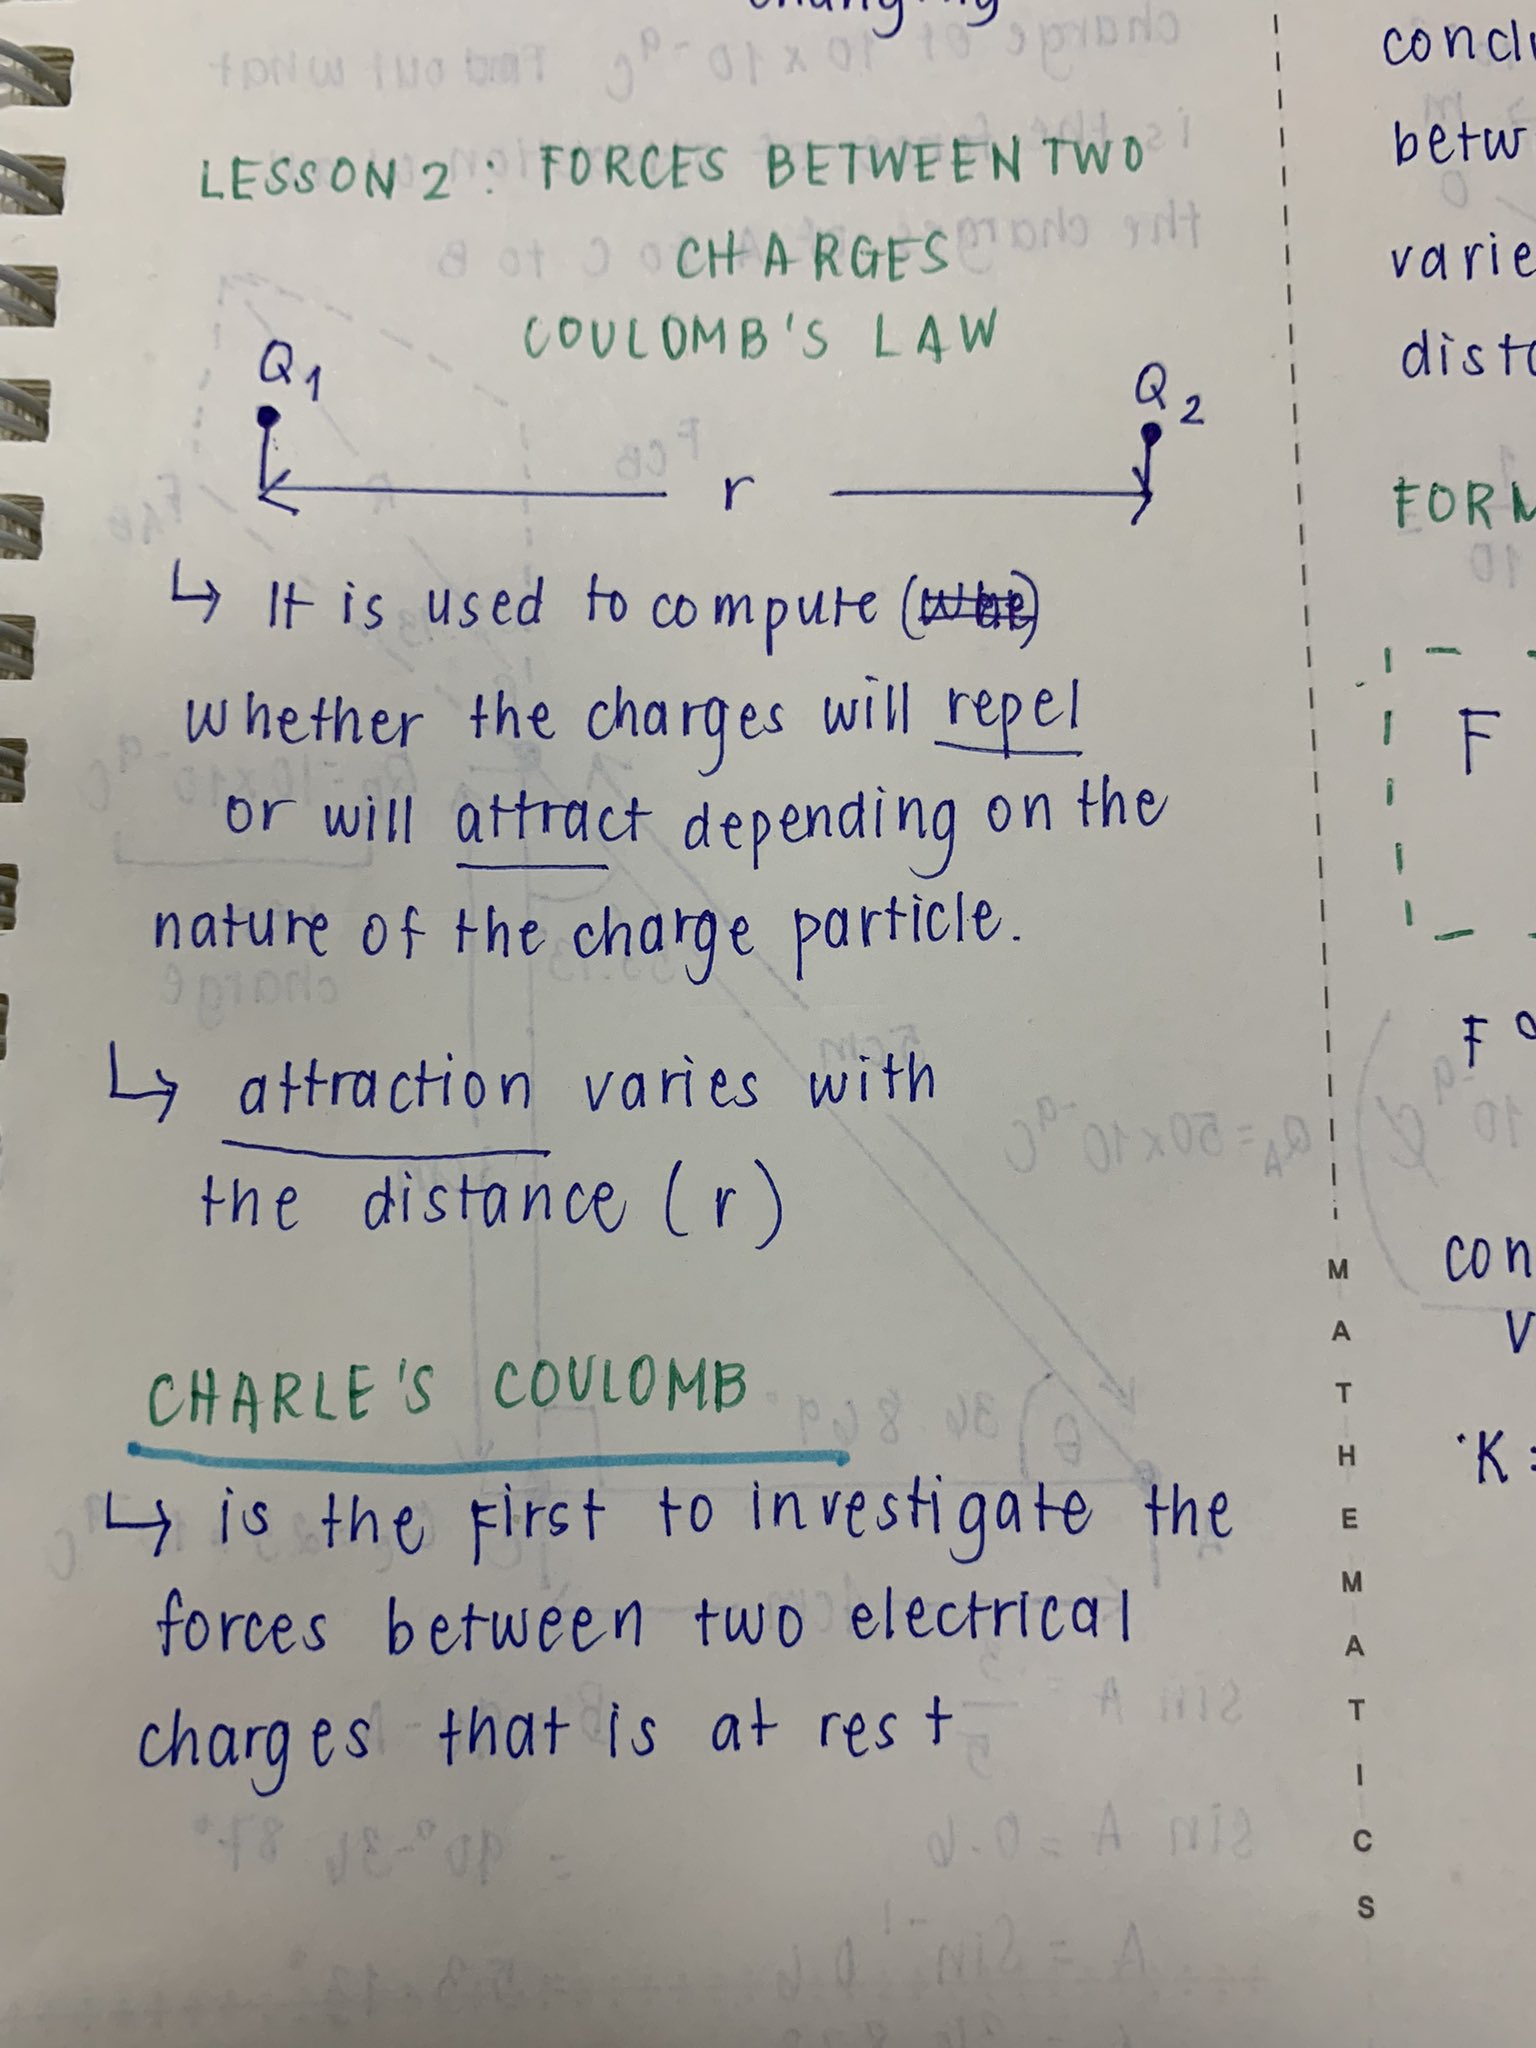 changing
LESSON 2 : FORCES BETWEEN TWO
CHARGES
COULOMB'S LAW
Q1
Q2
r
↳ It is used to compute
whether the charges will repel
or will attract depending on the
nature of the charge particle.
↳ attraction varies with
the distance (r)
CHARLE'S COULOMB
↳ is the first to investigate the
forces between two electrical
charges that is at rest
MATHEMATICS
F
F
K